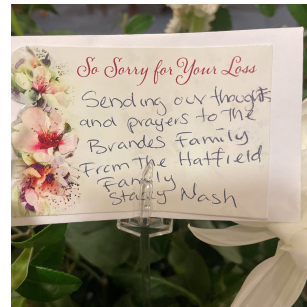 So Sorry for Your Loss
Sending our thoughts
and prayers to the
Brandes Family
From The Hatfield
Family
Stacy Nash